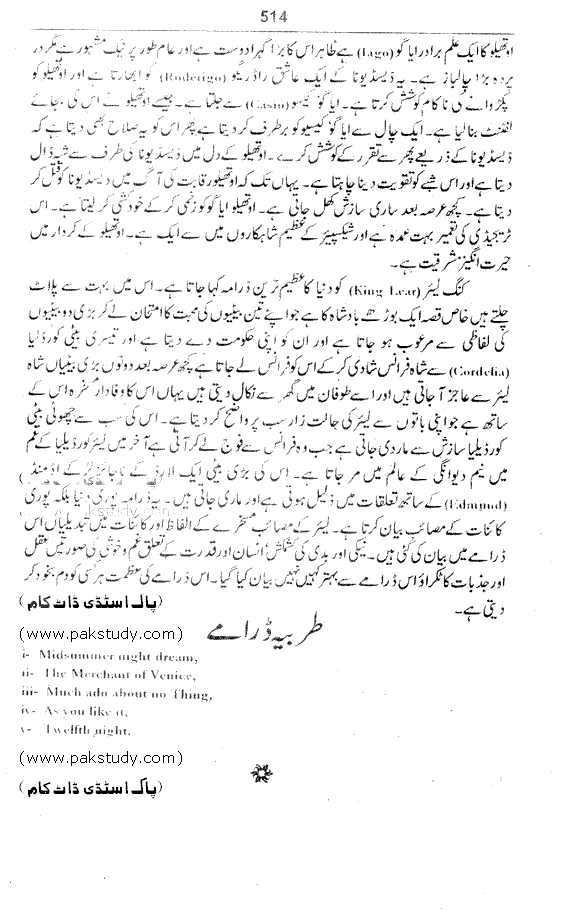 514
اوتھیلو کا ایک علم بردار ایاگو (Iago) ہے ظاہر اس کا بڑا گہرا دوست ہے اور عام طور پر نیک مشہور ہے مگر در
پردہ بڑا چالباز ہے۔ یہ ڈیسڈیونا کے ایک عاشق راڈریگو (Roderigo) کو ابھارتا ہے اور اوتھیلو کو
پکڑوانے کی ناکام کوشش کرتا ہے۔ ایاگو کیسیو (Casio) سے جلتا ہے۔ جیسے اوتھیلو نے اس کی بجائے
لفٹننٹ بنا لیا ہے۔ ایک چال سے ایاگو کیسیو کو برطرف کر دیتا ہے پھر اس کو یہ صلاح بھی دیتا ہے کہ
ڈیسڈیونا کے ذریعے پھر سے تقرر کے کوشش کرے۔ اوتھیلو کے دل میں ڈیسڈیونا کی طرف سے شبہ ڈال
دیتا ہے اور اس شبے کو تقویت دینا چاہتا ہے۔ یہاں تک کہ اوتھیلو رقابت کی آگ میں دیسڈیونا کو قتل کر
دیتا ہے۔ کچھ عرصہ بعد ساری سازش کھل جاتی ہے۔ اوتھیلو ایاگو کو زخمی کر کے خودکشی کر لیتا ہے۔ اس
ٹریجیڈی کی تعمیر بہت عمدہ ہے اور شیکسپیئر کے عظیم شاہکاروں میں سے ایک ہے۔ اوتھیلو کے کردار میں
حیرت انگیز مشرقیت ہے۔
کنگ لیئر (King Lear) کو دنیا کا عظیم ترین ڈرامہ کہا جاتا ہے۔ اس میں بہت سے پلاٹ
چلتے ہیں خاص قصہ ایک بوڑھے بادشاہ کا ہے جو اپنے تین بیٹیوں کی محبت کا امتحان لے کر بڑی دو بیٹیوں
کی لفاظی سے مرعوب ہو جاتا ہے اور ان کو اپنی حکومت دے دیتا ہے اور تیسری بیٹی کورڈیلیا
(Cordelia) سے شاہ فرانس شادی کر کے اس کو فرانس لے جاتا ہے کچھ عرصہ بعد دونوں بڑی بیٹیاں شاہ
لیئر سے عاجز آ جاتی ہیں اور اسے طوفان میں گھر سے نکال دیتی ہیں یہاں اس کا وفادار مسخرہ اس کے
ساتھ ہے جو اپنی باتوں سے لیئر کی حالت زار سب پر واضح کر دیتا ہے۔ اس کی سب سے چھوٹی بیٹی
کورڈیلیا سازش سے مار دی جاتی ہے جب وہ فرانس سے فوج لے کر آتی ہے آخر میں لیئر کورڈیلیا کے غم
میں نیم دیوانگی کے عالم میں مر جاتا ہے۔ اس کی بڑی بیٹی ایک لارڈ کے ناجائز لڑکے اڈمنڈ
(Edmund) کے ساتھ تعلقات میں ذلیل ہوتی ہے اور ماری جاتی ہیں۔ یہ ڈرامہ پوری دنیا بلکہ پوری
کائنات کے مصائب بیان کرتا ہے۔ لیئر کے مصائب مسخرے کے الفاظ اور کائنات میں تبدیلیاں اس
ڈرامے میں بیان کی گئی ہیں۔ نیکی اور بدی کی کشمکش انسان اور قدرت کے تعلق غم و خوشی کی صورتیں عقل
اور جذبات کا ٹکراؤ اس ڈرامے سے بہتر کہیں نہیں بیان کیا گیا۔ اس ڈرامے کی عظمت ہر کسی کو دم بخود کر
دیتی ہے۔
(پاک اسٹڈی ڈاٹ کام)
(www.pakstudy.com)
طربیہ ڈرامے
i- Midsummer night dream,
ii- The Merchant of Venice,
iii- Much ado about no Thing,
iv- As you like it,
v- Twelfth night,
(www.pakstudy.com)
(پاک اسٹڈی ڈاٹ کام)